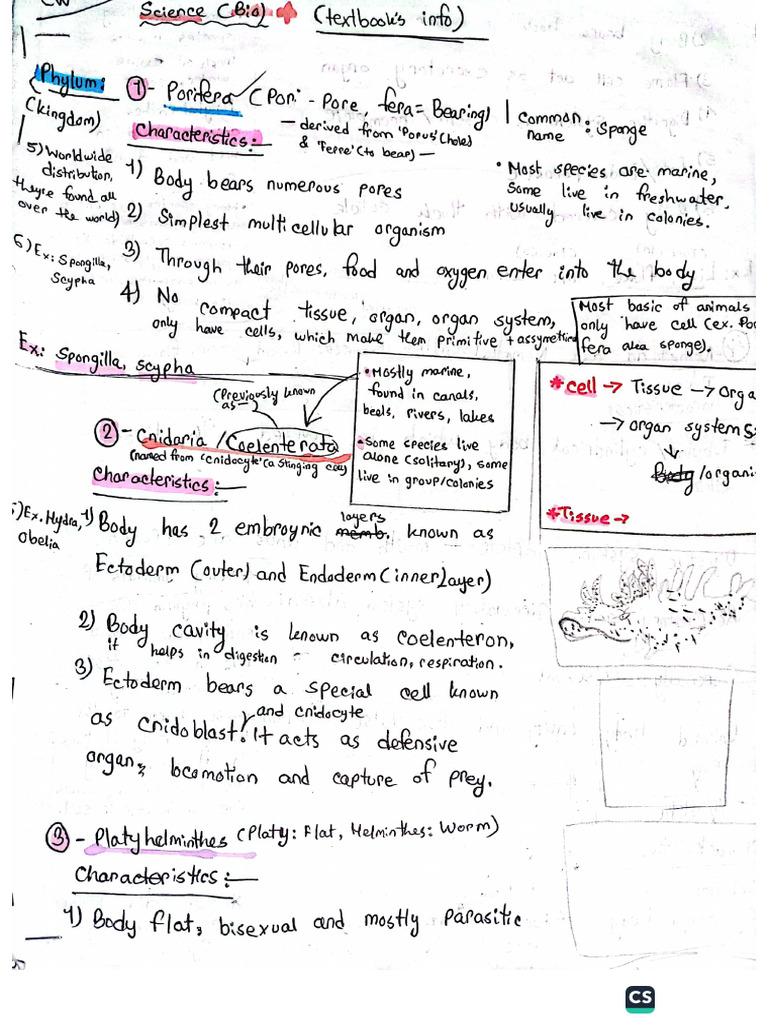 CW
Science (Bio) + (textbook's info)
Phylum:
(kingdom)
1 - Porifera (Pori - Pore, fera = Bearing)
— derived from 'Porus' (hole)
& 'Ferre' (to bear) —
Common name : Sponge
Characteristics:-
• Most species are marine,
Some live in freshwater,
usually live in colonies.
1) Body bears numerous pores
2) Simplest multicellular organism
3) Through their pores, food and oxygen enter into the body
4) No compact tissue, organ, organ system,
only have cells, which make them primitive + assymetrical
5) Worldwide
distribution,
they're found all
over the world)
6) Ex: Spongilla,
Scypha
Most basic of animals
only have cell (ex. Por
fera aka sponge).
Ex: Spongilla, scypha
(Previously known
as —
• Mostly marine,
found in canals,
beels, rivers, lakes
• Some species live
alone (solitary), some
live in group/colonies
*cell → Tissue → Orga
→ organ systems
↓
Body/organi
*Tissue →
2 - Cnidaria / Coelenterata
(named from 'cnidocyte' (a stinging cell)
Characteristics:-
5) Ex. Hydra,
Obelia
1) Body has 2 embroynic memb. layers known as
Ectoderm (outer) and Endoderm (inner layer)
2) Body cavity is known as coelenteron,
it helps in digestion - circulation, respiration.
3) Ectoderm bears a special cell known
as cnidoblast. and cnidocyte It acts as defensive
organ, locomotion and capture of prey.
3 - Platyhelminthes (Platy: Flat, Helminthes: Worm)
Characteristics:-
1) Body flat, bisexual and mostly parasitic
CS